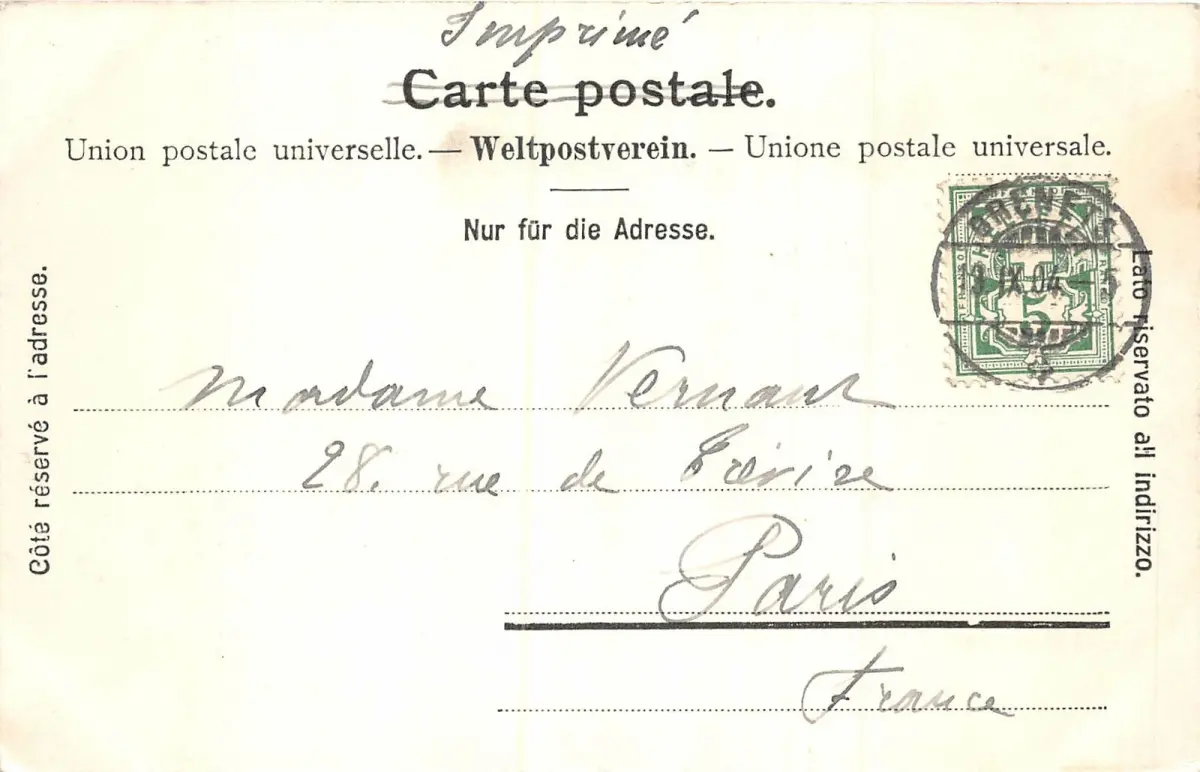 Imprimé
Carte postale.
Union postale universelle. — Weltpostverein. — Unione postale universale.
Nur für die Adresse.
Côté réservé à l'adresse.
Lato riservato all indirizzo.
13 IX.04 – 5
5
Madame Vernant
28. rue de Trévise
Paris
France